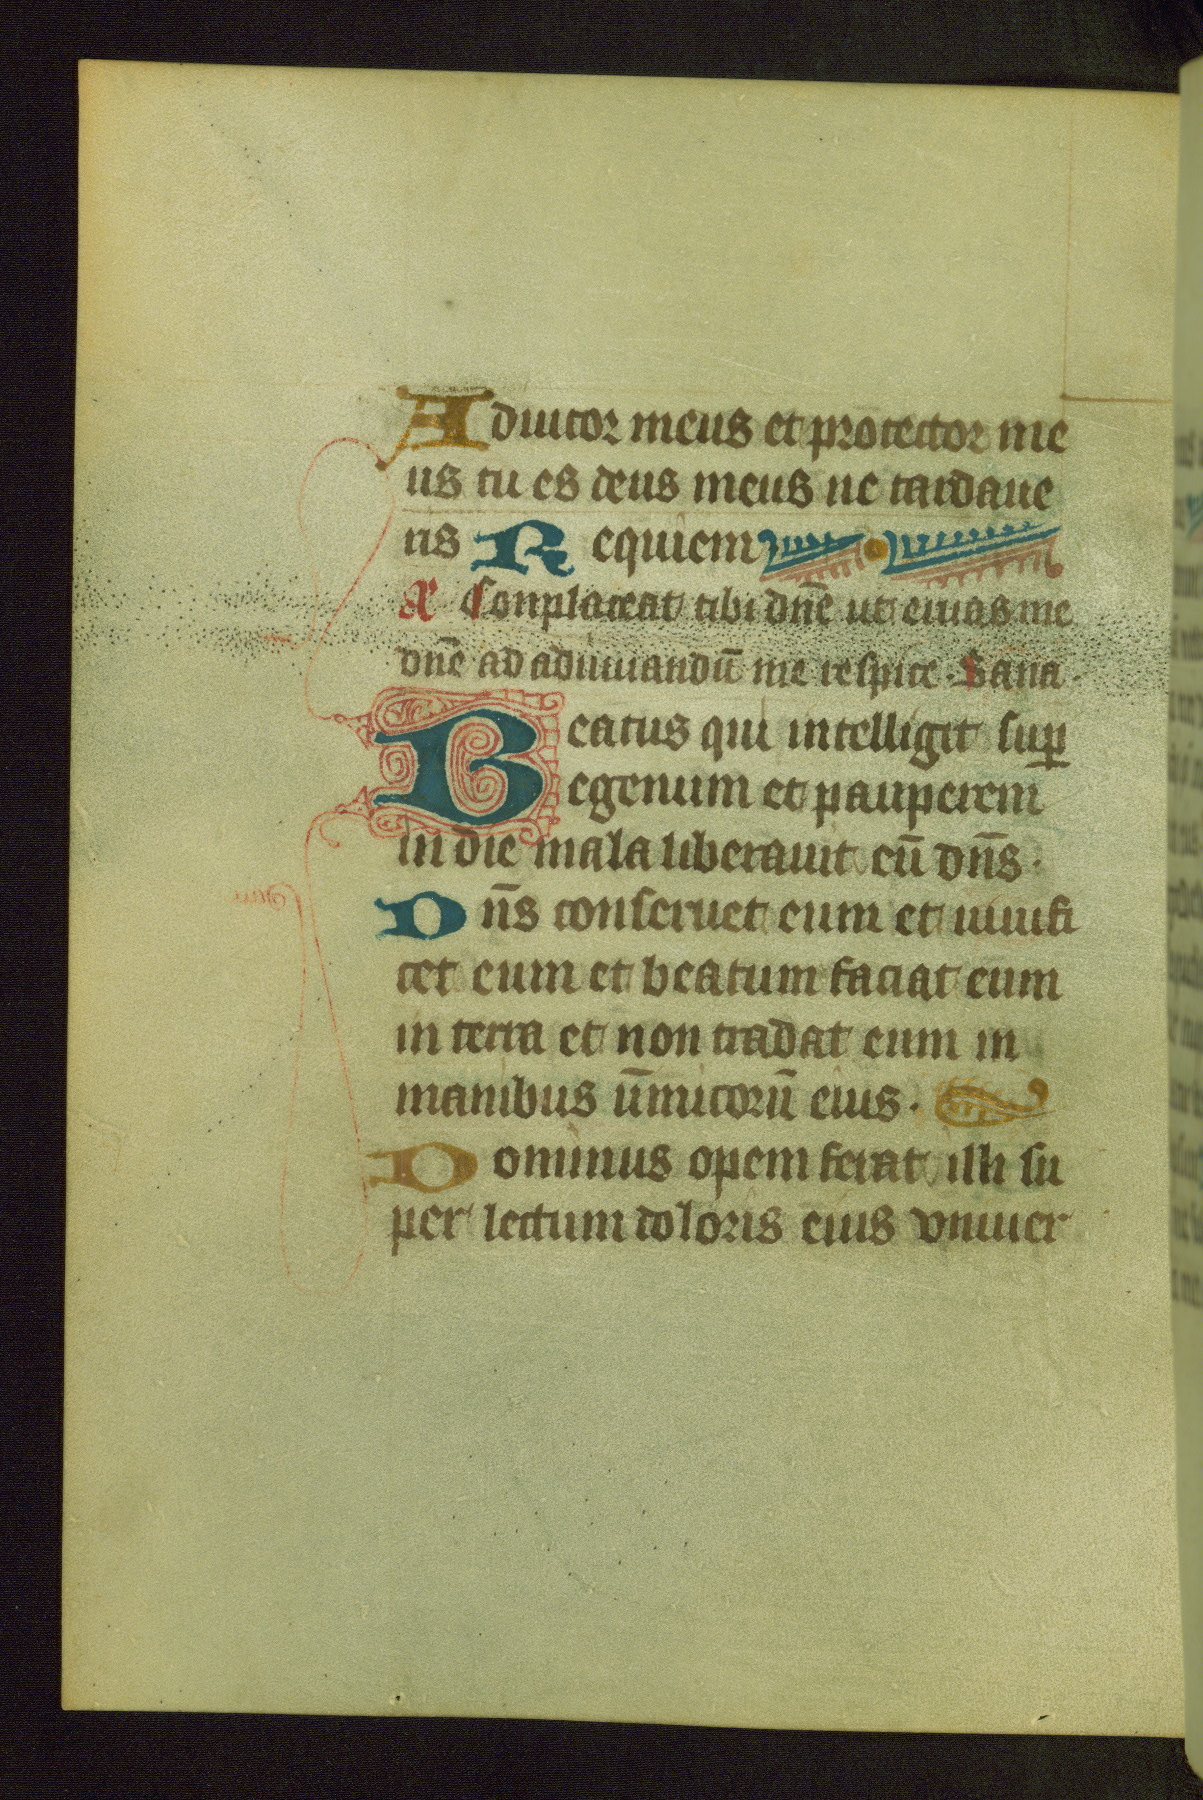 Adiutor meus et protector me
us tu es deus meus ne tardaue
ris Requiem
A Conplaceat tibi dñe ut eruas me
dñe ad adiuuandū me respice · Sana ·
Beatus qui intelligit sup̱
egenum et pauperem
in die mala liberauit eū dñs ·
Dñs conseruet eum et uiuifi
cet eum et beatum faciat eum
in terra et non tradat eum in
manibus īnimicorū eius ·
Dominus opem ferat illi su
per lectum doloris eius vniuer